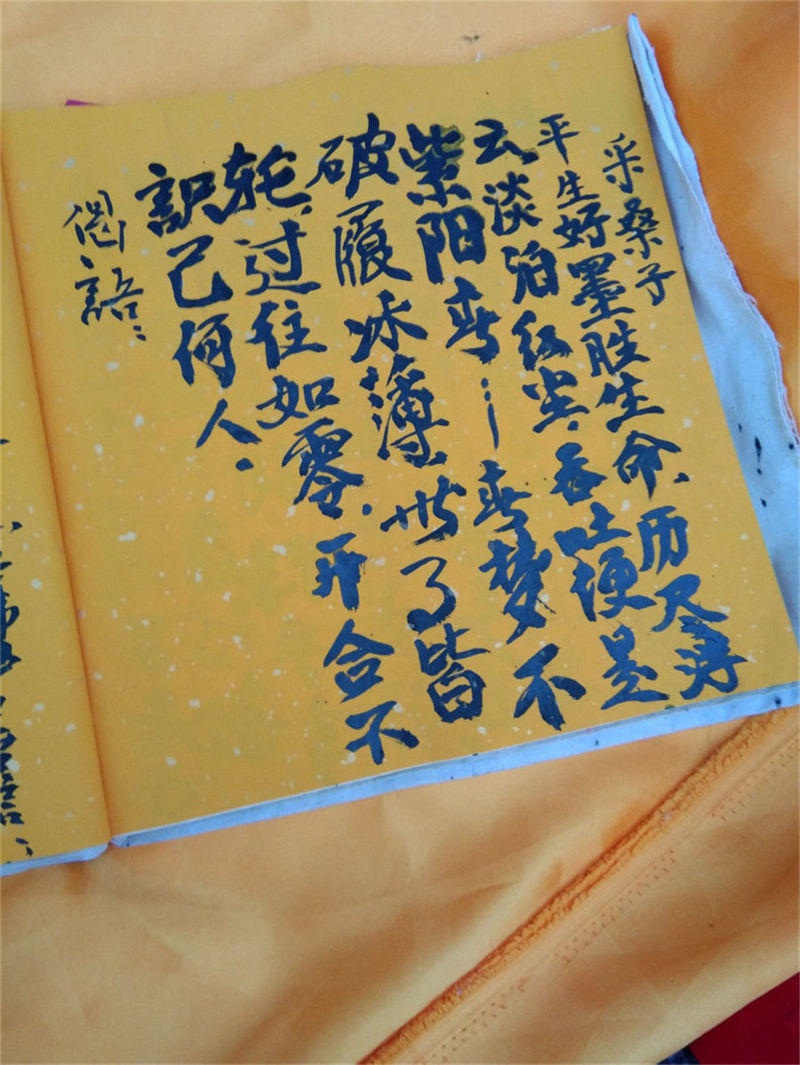 采桑子
平生好墨胜生命、历尽浮
云淡泊红尘、吞吐便是
紫阳春；春梦不
破履冰薄世了皆
轮、过往如零.开合不
識己何人.
偈語：